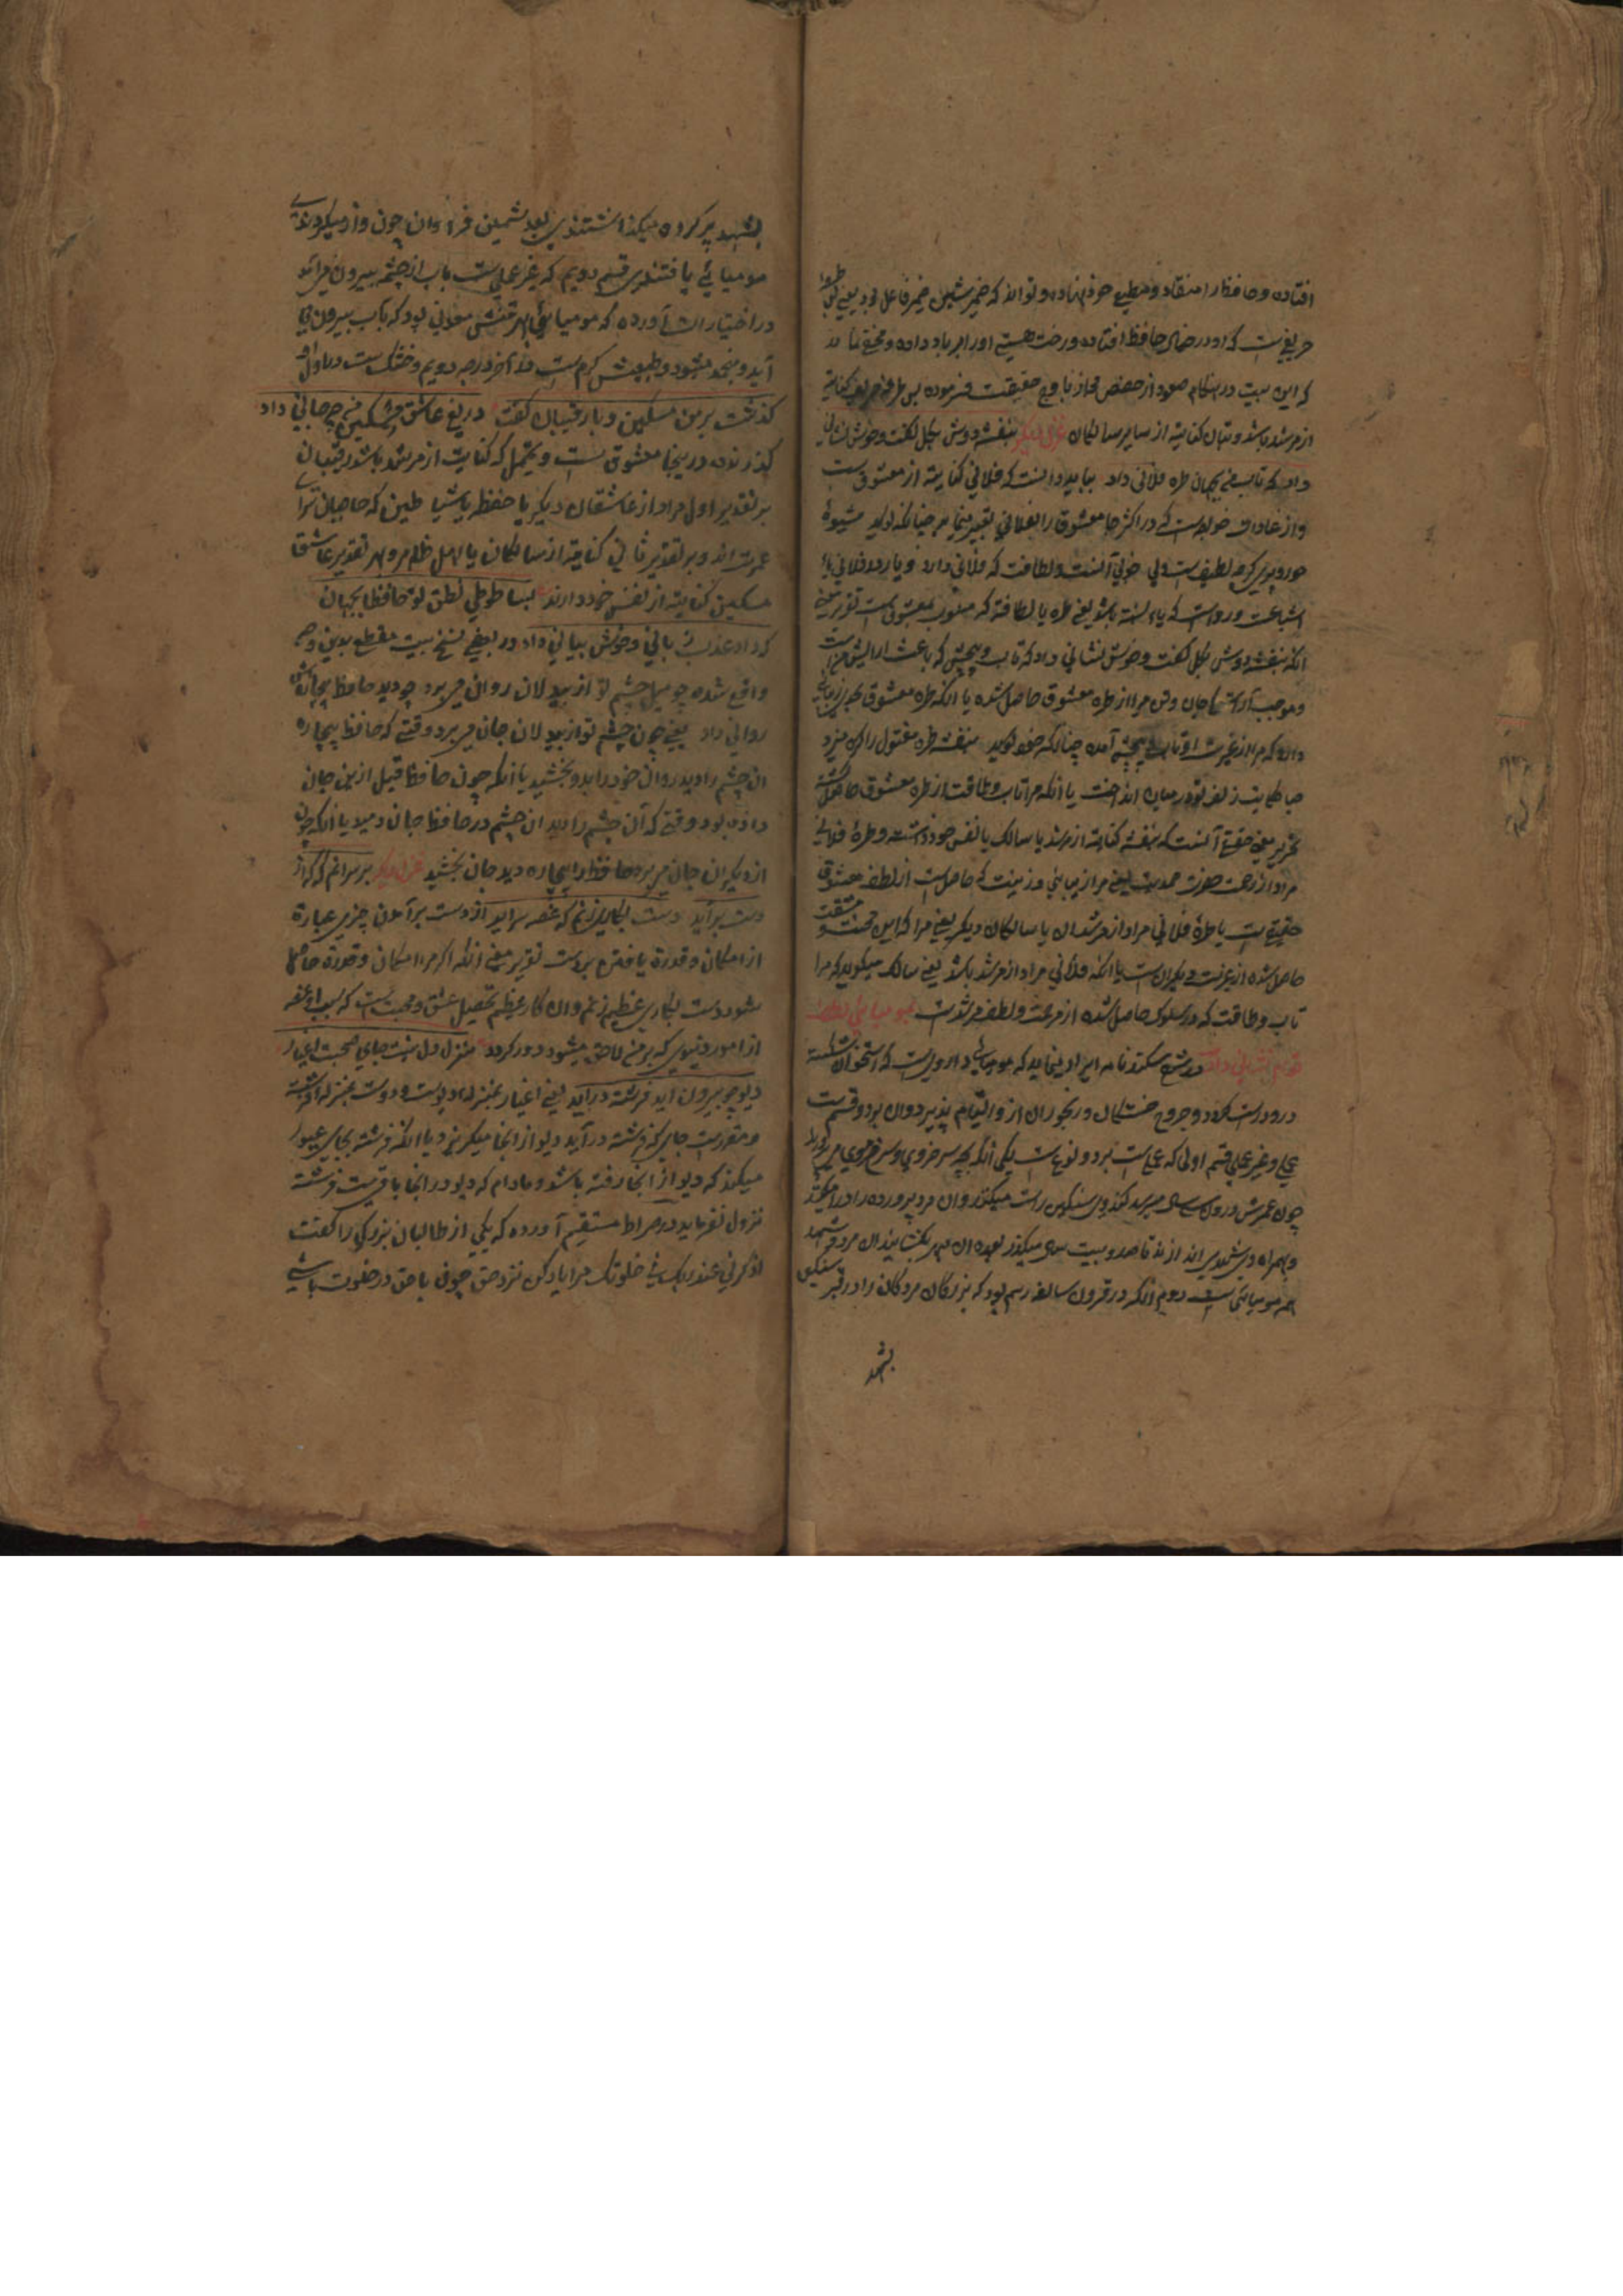 افتاده و حافظ را منقاد و مطیع خود نهاده و تواند که ضمیر شین ضمیر فاعل بود یعنی
حریفیست که او در خمای حافظ افتاده و رخت هستی او را بر باد داده و مخفی نماند
که این بیت در هنگام صعود از حضیض مجاز باوج حقیقت فرموده پس طرفه حریف کنایة
از مرشد باشد و بتان کنایة از سایر سالکان غزل دیگر بنفشه دوش بگل گفت و خوش نشانی
داد که تاب من بجهان طره فلانی داد بباید دانست که فلانی کنایة از معشوق است
و از عادات خواجه است که در اکثر جا معشوق را بفلانی تعبیر مینماید چنانکه گوید شیوهٔ
حور و پری گرچه لطیف است ولی خوبی آنست و لطافت که فلانی دارد و یا در فلانی یاء
اشباعت و رواست که یاء نسبت باشد یعنی طره یا لطافتی که منسوب بمعشوق است تقریر معنی
آنکه بنفشه دوش بگل گفت و خوش نشانی داد که تاب و پیچش که باعث آرایش من است
و موجب آراستگی جان و تن مرا از طره معشوق حاصل شده یا آنکه طره معشوق
دارد که مرا از غیرت او تاب و پیچش آمده چنانکه خود گوید بنفشه طره مفتول را گره میزد
صبا حکایت زلف تو در میان انداخت یا آنکه مرا تاب و طاقت از طره معشوق حاصل گشته
تحریر معنی حقیقی آنست که بنفشه کنایة از مرشد یا سالک یا نفس خود داشته و طرهٔ فلانی
مراد از رحمت حضرت صمدیت یعنی مرا زیبایی و زینت که حاصل است از لطف معشوق
حقیقی است یا طرهٔ فلانی مراد از مرشدان یا سالکان دیگر یعنی مرا که این محنت و مشقت
حاصل شده از غیرت دیگران است یا آنکه فلانی مراد از مرشد باشد یعنی سالک میگوید که مرا
تاب و طاقت که در سلوک حاصل شده از مرحمت و لطف مرشد است
نشانی داد در شرح سکندرنامه ایراد مینماید که مومیائی دارویست که استخوان شکسته
درو درست گردد و جروح خستگان و رنجوران ازو التیام پذیرد و آن بر دو قسم است
عملی و غیر عملی قسم اولی که عملیست بر دو نوع است یکی آنکه بچه سرخ روی و سرخ موی می پرورند
چون عمرش در سی سال میرسد کندوی سنگین راست میکنند و آن مرد پرورده را در آن میکنند
و بهمراه وی شهد می اندازند تا صد و بیست سال میگذرد بعده آن مهر بگشایند آن مرد و شهد
همه مومیائی است دوم آنکه در قرون سالفه رسم بود که بزرگان مردگان را در قبر سنگین
بشهد
بشهد پر کرده میگذاشتند پس بعد سنین فراوان چون واز میکردند
مومیائی یافتندی قسم دویم که غیر عملی است بآب از چشمه بیرون می آید
در اختیارات آورده که مومیائی بهر قسمی معدنی بود که بآب بیرون می
آید و منجمد میشود و طبیعتش گرم است تا آخر درجه دویم و خشک است در اول
گذشت بر من مسکین و با رقیبان گفت دریغ عاشق مسکین من چه جانی داد
گذرنده در ینجا معشوق است و یحتمل که کنایت از مرشد باشد رقیبان
بر تقدیر اول مراد از عاشقان دیگر یا حفظه یا شیاطین که حاجبان سرای
عزت اند و بر تقدیر ثانی کنایة از سالکان یا اهل ظاهر و بهر تقدیر عاشق
مسکین کنایة از نفس خود دارند بسا طوطی نطق تو حافظا بجهان
که داد عذب بیانی و خوش بیانی داد و در بعضی نسخ بیت مقطع بدین وجه
واقع شده چو سیل چشم تو از بیدلان روان می برد چو دید حافظ بیچاره
روانی داد یعنی چون چشم تو از بیدلان جان می برد وقتی که حافظ بیچاره
آن چشم را دید روان خود را بدو بخشید یا آنکه چون حافظ قبل ازین جان
داده بود وقتی که آن چشم را دید آن چشم در حافظ جان دمید یا آنکه چون
از دیگران جان می برد حافظ را بیچاره دید جان بخشید غزل دیگر بر سر آنم که گر از
دست برآید دست بکاری زنم که غصه سرآید از دست برآمدن چیزی عبارة
از امکان و قدرة یافتن بروست تقریر معنی آنکه اگر مرا امکان و قدرة حاصل
شود دست بکاری عظیم زنم و آن کار عظیم تحصیل عشق و محبت است که بسبب او غصه
از امور دنیوی که بر من لاحق میشود دور گردد منزل دل نیست جای صحبت اغیار
دیو چو بیرون آید فرشته درآید یعنی اغیار بمنزله دیوست و دوست بمنزله فرشته
و مقررست جای که فرشته درآید دیو از آنجا میگریزد یا آنکه فرشته بجای عبور
میکند که دیو از آنجا رفته باشد و مادام که دیو در آنجا باقیست فرشته
نزول نفرماید در صراط مستقیم آورده که یکی از طالبان بزرگی را گفت
اذکرنی عند ربک فی خلوتک مرا یاد کن نزد حق چون با حق در خلوت باشی